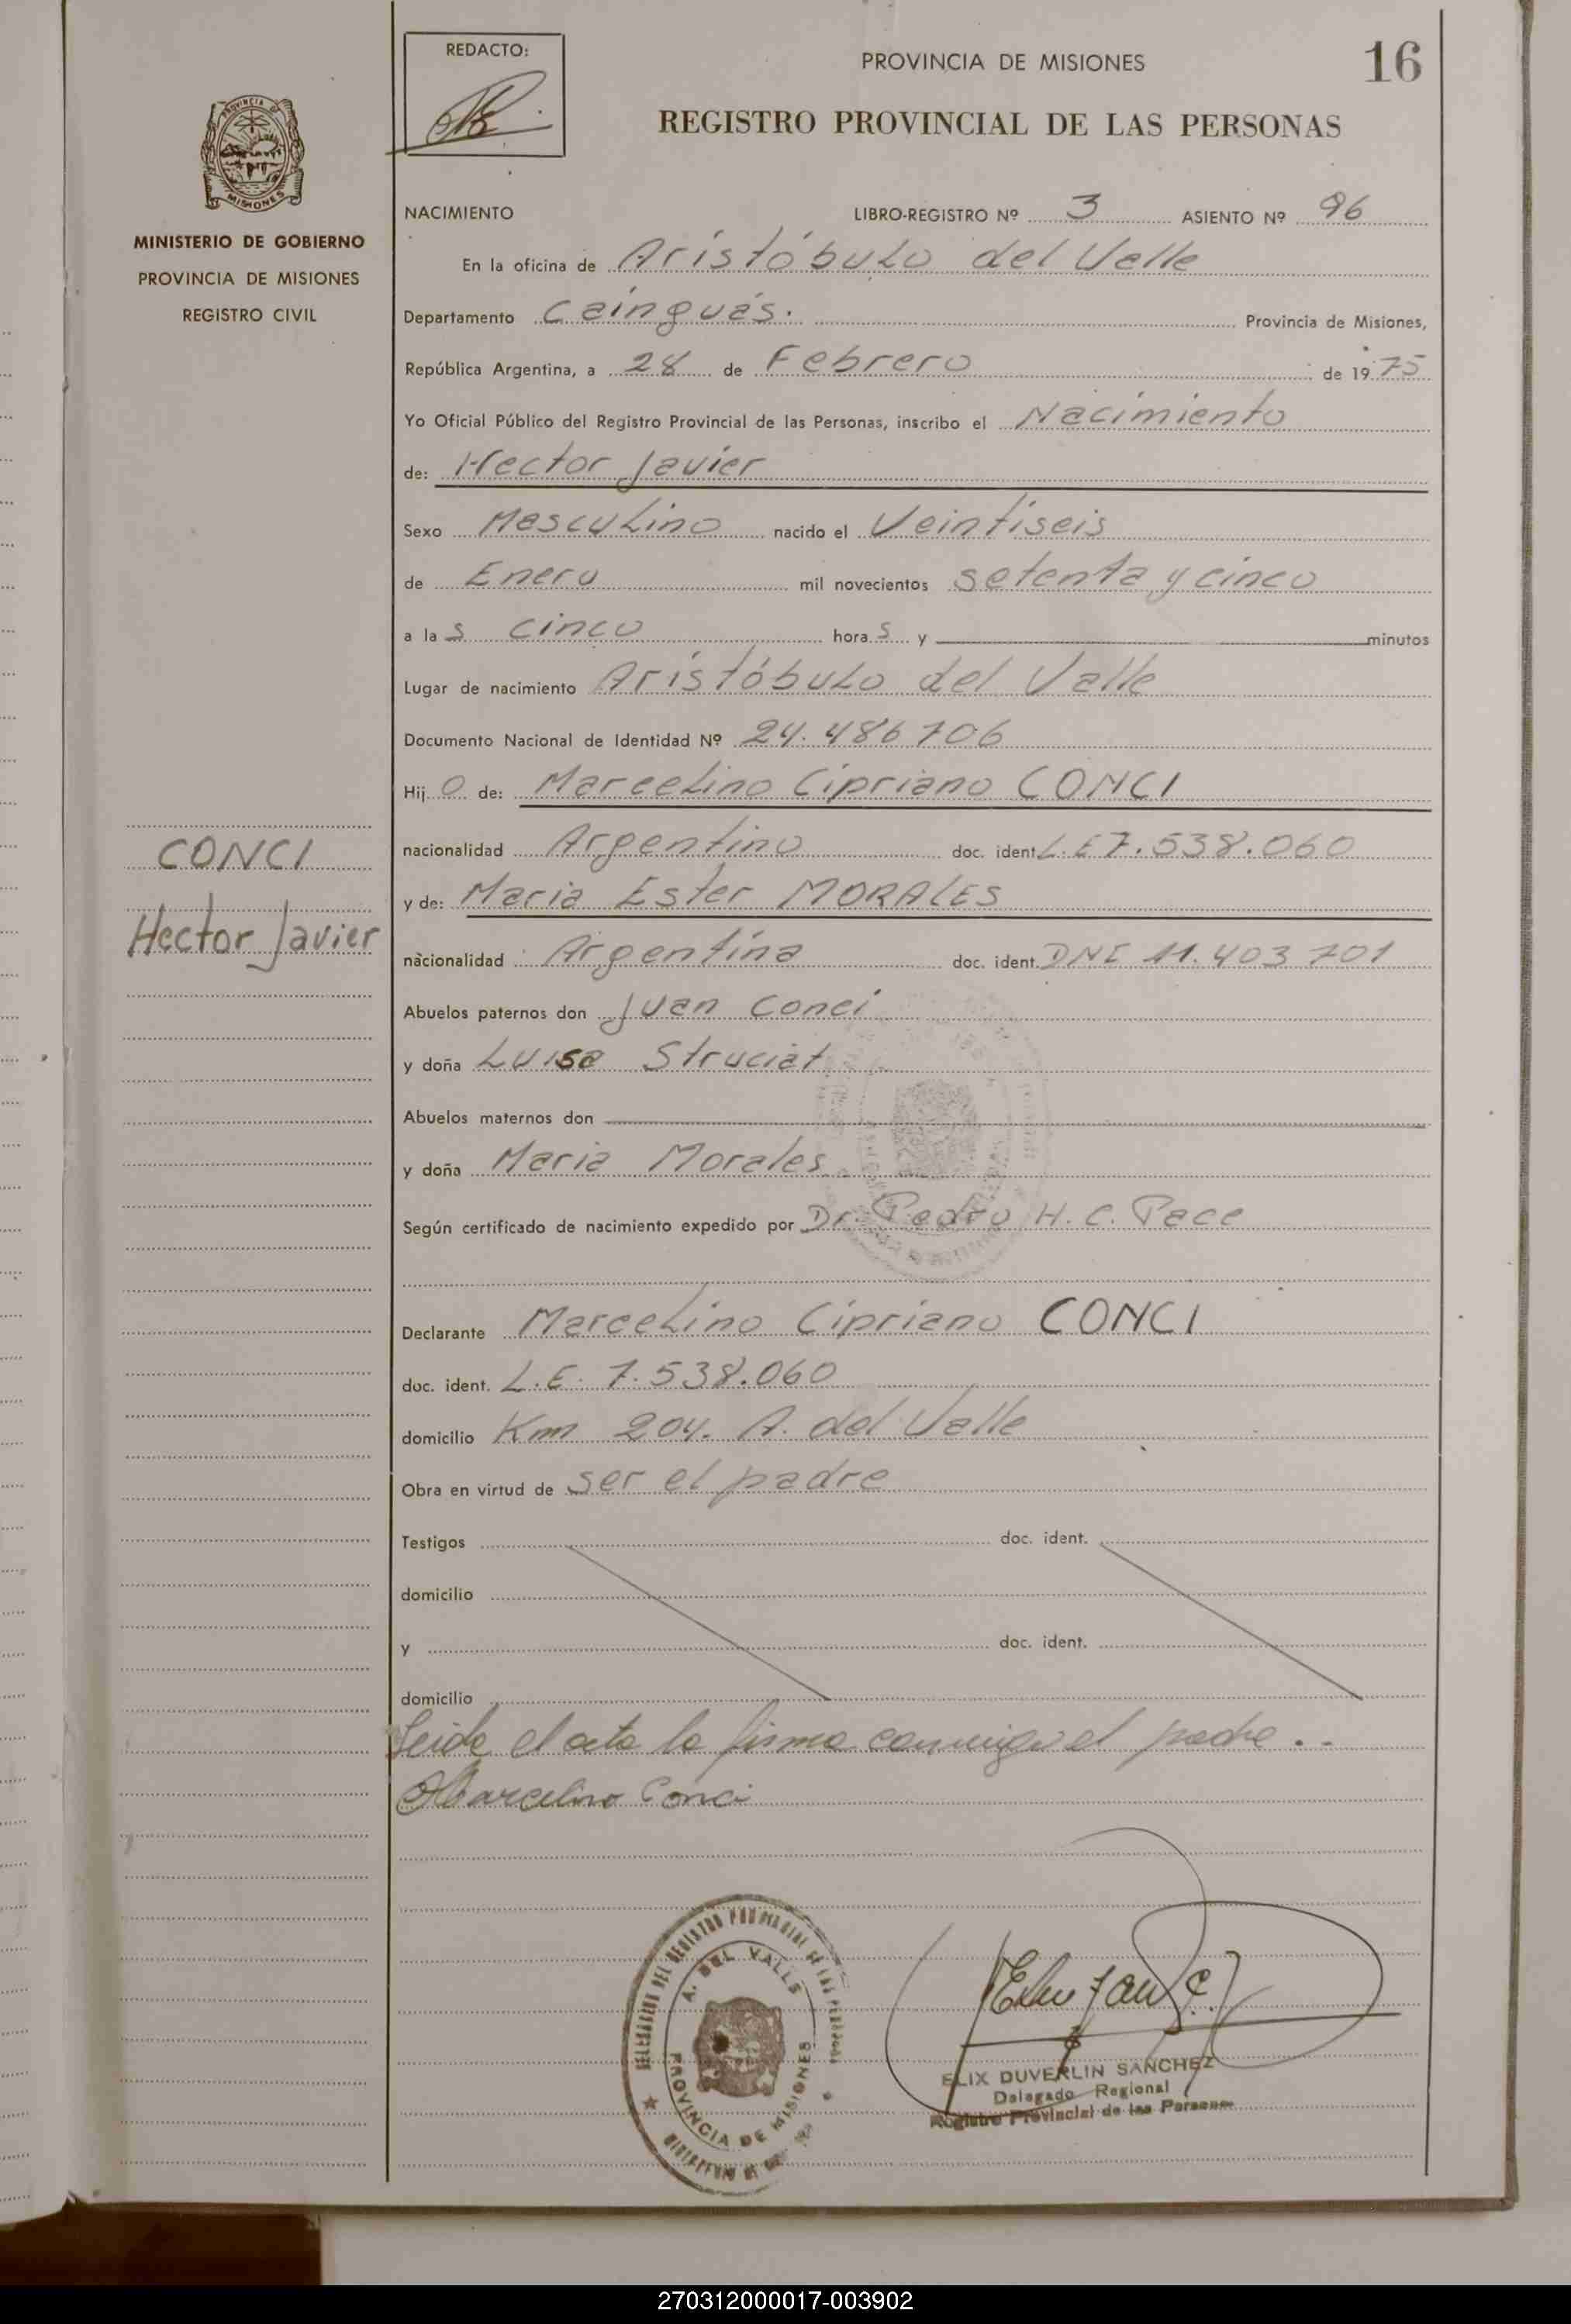 REDACTO:
PROVINCIA DE MISIONES
16
REGISTRO PROVINCIAL DE LAS PERSONAS
MISIONES
MINISTERIO DE GOBIERNO
PROVINCIA DE MISIONES
REGISTRO CIVIL
NACIMIENTO LIBRO-REGISTRO Nº 3 ASIENTO Nº 96
En la oficina de Aristóbulo del Valle
Departamento Cainguás. Provincia de Misiones,
República Argentina, a 28 de Febrero de 1975
Yo Oficial Público del Registro Provincial de las Personas, inscribo el Nacimiento
de: Hector Javier
Sexo Masculino nacido el Veintiseis
de Enero mil novecientos setenta y cinco
a las cinco horas y minutos
Lugar de nacimiento Aristóbulo del Valle
Documento Nacional de Identidad Nº 24.486706
Hijo de: Marcelino Cipriano CONCI
nacionalidad Argentino doc. ident. L.E 7.538.060
CONCI
y de: Maria Ester MORALES
Hector Javier
nacionalidad Argentina doc. ident. DNI 11.403701
Abuelos paternos don Juan Conci
y doña Luisa Struciat
Abuelos maternos don
y doña Maria Morales
Según certificado de nacimiento expedido por Dr. Pedro H. C. Pace
Declarante Marcelino Cipriano CONCI
doc. ident. L.E. 7.538.060
domicilio Km 204. A. del Valle
Obra en virtud de ser el padre
Testigos doc. ident.
domicilio
y doc. ident.
domicilio
Leida el acta la firma conmigo el padre..
Marcelino Conci
A. DEL VALLE
PROVINCIA DE MISIONES
ELIX DUVERLIN SANCHEZ
Delegado Regional
Registro Provincial de las Personas
270312000017-003902